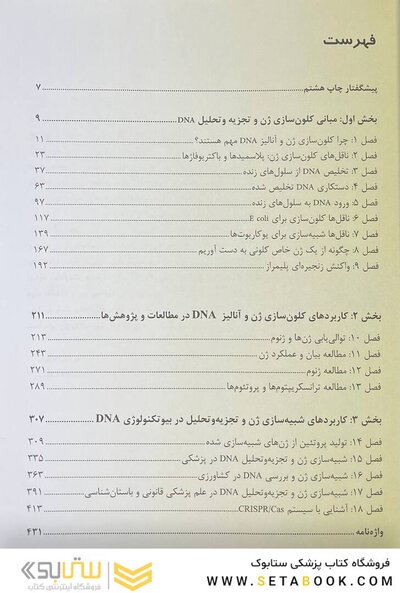 فهرست
پیشگفتار چاپ هشتم ........ ۷
بخش اول: مبانی کلون‌سازی ژن و تجزیه وتحلیل DNA ........ ۹
فصل ۱: چرا کلون‌سازی ژن و آنالیز DNA مهم هستند؟ ........ ۱۱
فصل ۲: ناقل‌های کلون‌سازی ژن: پلاسمیدها و باکتریوفاژها ........ ۲۳
فصل ۳: تخلیص DNA از سلول‌های زنده ........ ۳۷
فصل ۴: دستکاری DNA تخلیص شده ........ ۶۳
فصل ۵: ورود DNA به سلول‌های زنده ........ ۹۷
فصل ۶: ناقل‌ها کلون‌سازی برای E coli ........ ۱۱۷
فصل ۷: ناقل‌ها شبیه‌سازی برای یوکاریوت‌ها ........ ۱۳۹
فصل ۸: چگونه از یک ژن خاص کلونی به دست آوریم ........ ۱۶۷
فصل ۹: واکنش زنجیره‌ای پلیمراز ........ ۱۹۲
بخش ۲: کاربردهای کلون‌سازی ژن و آنالیز DNA در مطالعات و پژوهش‌ها ........ ۲۱۱
فصل ۱۰: توالی‌یابی ژن‌ها و ژنوم ........ ۲۱۳
فصل ۱۱: مطالعه بیان و عملکرد ژن ........ ۲۴۳
فصل ۱۲: مطالعه ژنوم ........ ۲۷۱
فصل ۱۳: مطالعه ترانسکریپتوم‌ها و پروتئوم‌ها ........ ۲۸۹
بخش ۳: کاربردهای شبیه‌سازی ژن و تجزیه‌وتحلیل در بیوتکنولوژی DNA ........ ۳۰۷
فصل ۱۴: تولید پروتئین از ژن‌های شبیه‌سازی شده ........ ۳۰۹
فصل ۱۵: شبیه‌سازی ژن و تجزیه‌وتحلیل DNA در پزشکی ........ ۳۳۵
فصل ۱۶: شبیه‌سازی ژن و بررسی DNA در کشاورزی ........ ۳۶۳
فصل ۱۷: شبیه‌سازی ژن و تجزیه‌وتحلیل DNA در علم پزشکی قانونی و باستان‌شناسی ........ ۳۹۱
فصل ۱۸: آشنایی با سیستم CRISPR/Cas ........ ۴۱۳
واژه‌نامه ........ ۴۳۱
فروشگاه کتاب پزشکی ستابوک
WWW.SETABOOK.COM
ستابوک
فروشگاه اینترنتی کتاب